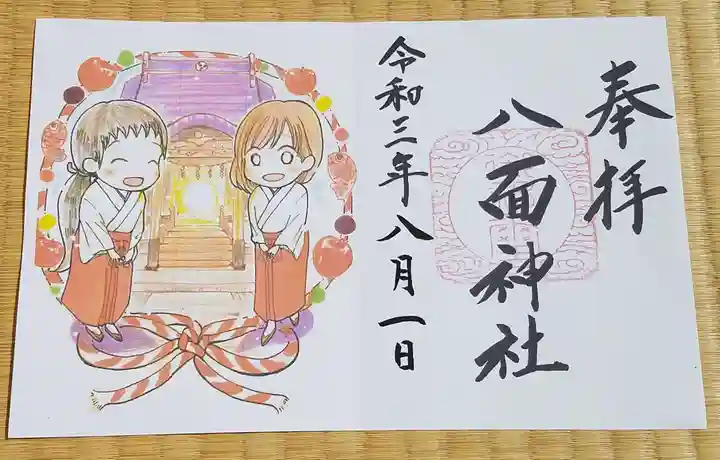 奉拝
八面神社
令和三年八月一日